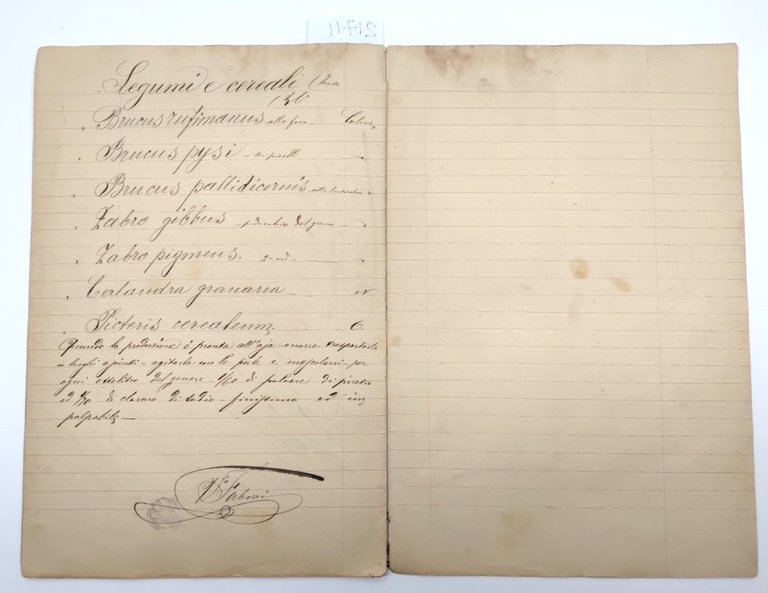 217-11
Legumi e cereali
Brucus rufimanus alla fava
Brucus pysi - ai piselli
Brucus pallidicornis alla lenticchia
Zabro gibbus - del grano
Zabro pigmeus. id.
Calandra granaria
cerealeum
Quando la produzione è pronta all'aja - trasportarla
in luoghi - agitarla con le pale e mescolarvi - per
ogni ettolitro del genere - di polvere di
ed di cloruro di sodio - finissimo ed im=
palpabile